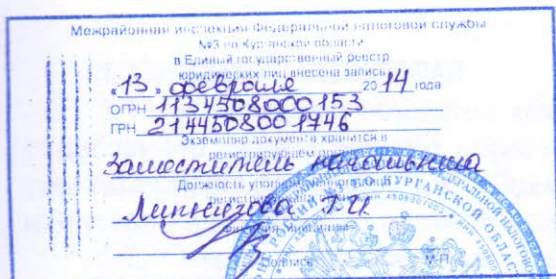 Межрайонная инспекция Федеральной налоговой службы
№3 по Курганской области
в Единый государственный реестр
юридических лиц внесена запись
«13» февраля 2014 года
ОГРН 1134508000153
ГРН 2144508001746
Экземпляр документа хранится в
регистрирующем
Заместитель начальника
Должность уполномоченного
регистрирующего
Г.И.
Фамилия, инициалы
Подпись М.П.
КУРГАНСКОЙ ОБЛАС